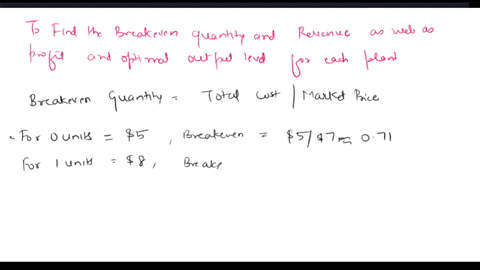 To Find the Breakeven quantity and Revenue as well as
profit and optimal output level for each plant
Breakeven Quantity = Total cost / Market Price
For 0 units = $5 , Breakeven = $5/$7 = 0.71
For 1 units = $8, Breake